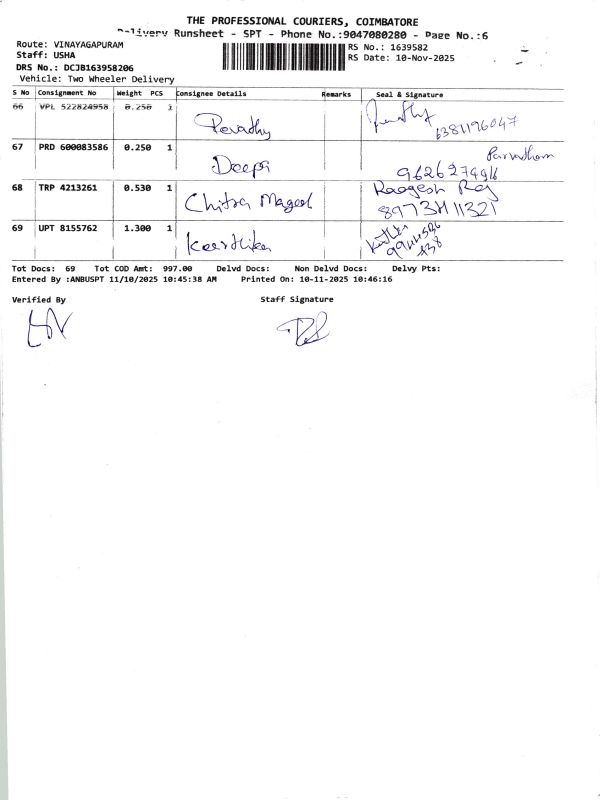 THE PROFESSIONAL COURIERS, COIMBATORE
Delivery Runsheet - SPT - Phone No.:9047080280 - Page No.:6
Route: VINAYAGAPURAM
RS No.: 1639582
Staff: USHA
RS Date: 10-Nov-2025
DRS No.: DCJB163958206
Vehicle: Two Wheeler Delivery
S No Consignment No Weight PCS Consignee Details Remarks Seal & Signature
66 VPL 522824958 0.250 1
6381196047
67 PRD 600083586 0.250 1 Deepa
9626274916
68 TRP 4213261 0.530 1 Chitra Mageel Raagesh Raj
8973411321
69 UPT 8155762 1.300 1 Keerthika
Tot Docs: 69 Tot COD Amt: 997.00 Delvd Docs: Non Delvd Docs: Delvy Pts:
Entered By :ANBUSPT 11/10/2025 10:45:38 AM Printed On: 10-11-2025 10:46:16
Verified By Staff Signature